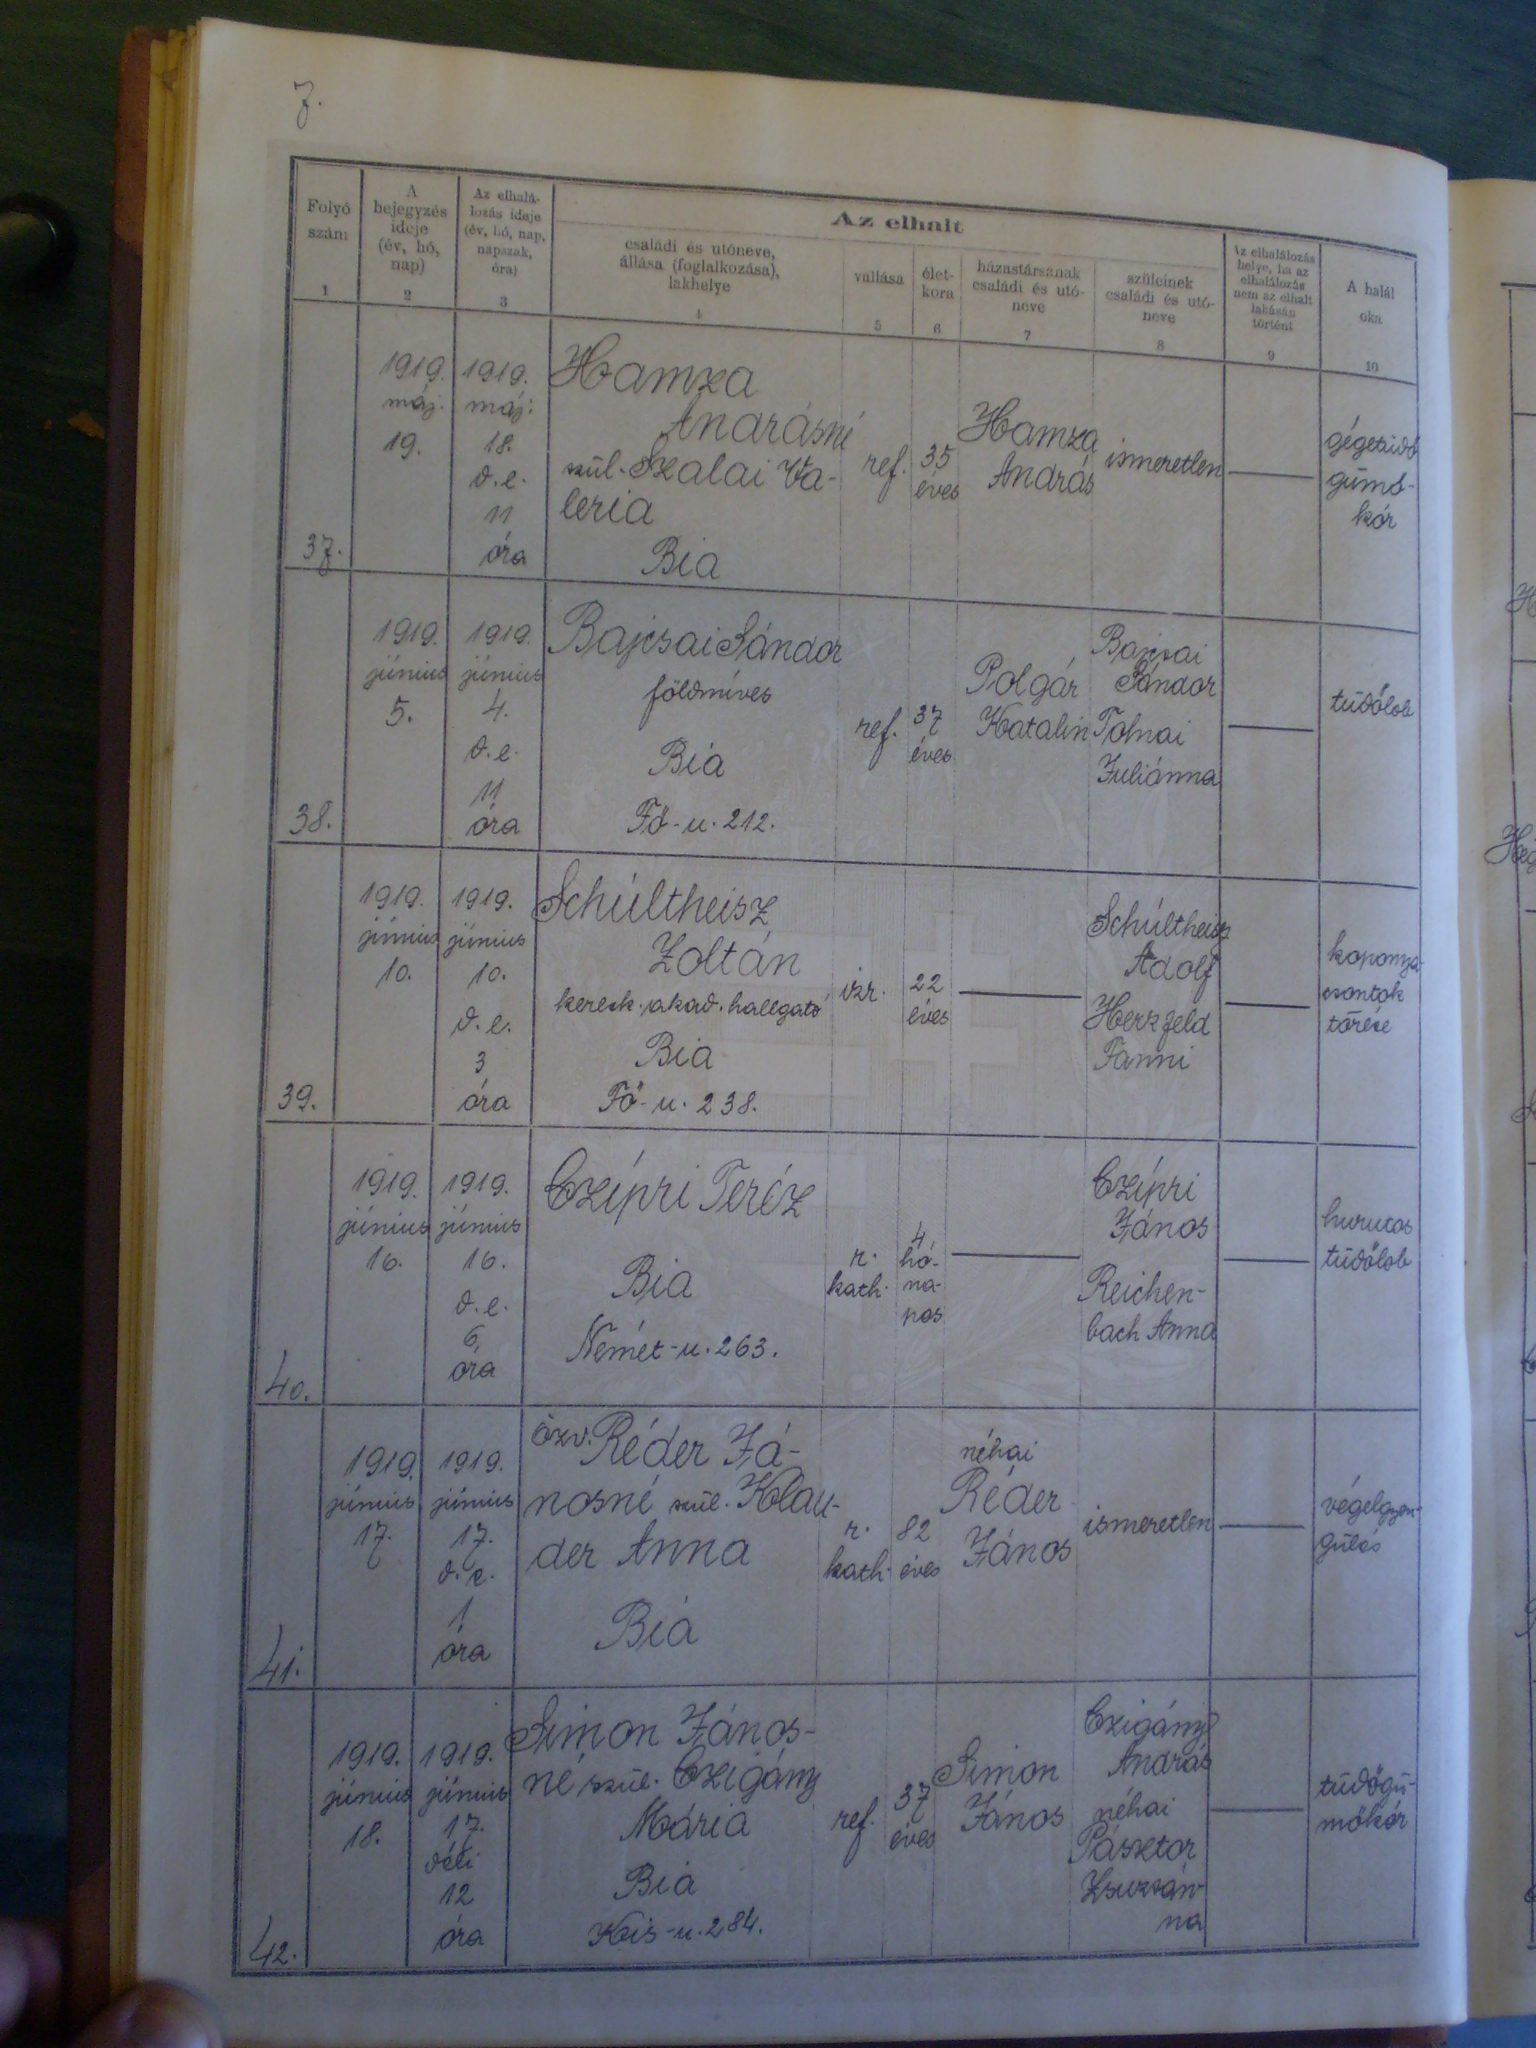 7.
Az elhalt
Folyó
szám
1
A
bejegyzés
ideje
(év, hó,
nap)
2
Az elhalá-
lozás ideje
(év, hó, nap,
napszak,
óra)
3
családi és utóneve,
állása (foglalkozása),
lakhelye
4
vallása
5
élet-
kora
6
házastársának
családi és utó-
neve
7
szüleinek
családi és utó-
neve
8
Az elhalálozás
helye, ha az
elhalálozás
nem az elhalt
lakásán
történt
9
A halál
oka
10
37.
1919.
máj.
19.
1919.
máj.
18.
d.e.
11
óra
Hamza
Andrásné
szül. Szalai Va-
leria
Bia
ref.
35
éves
Hamza
András
ismeretlen
gégetüdő
gümő-
kór
38.
1919.
június
5.
1919.
június
4.
d.e.
11
óra
Bajcsai Sándor
földmíves
Bia
Fő-u. 212.
ref.
37
éves
Polgár
Katalin
Bajcsai
Sándor
Tolnai
Juliánna
tüdőlob
39.
1919.
június
10.
1919.
június
10.
d.e.
3
óra
Schultheisz
Zoltán
keresk. akad. hallgató
Bia
Fő-u. 238.
izr.
22
éves
Schultheisz
Adolf
Herzfeld
Fanni
koponya-
csontok
törése
40.
1919.
június
16.
1919.
június
16.
d.e.
6
óra
Czípri Teréz
Bia
Német-u. 263.
r.
kath.
4
hó-
na-
pos
Czípri
János
Reichen-
bach Anna
hurutos
tüdőlob
41.
1919.
június
17.
1919.
június
17.
d.e.
1
óra
özv. Réder Já-
nosné szül. Klau-
der Anna
Bia
r.
kath.
82
éves
néhai
Réder
János
ismeretlen
végelgyen-
gülés
42.
1919.
június
18.
1919.
június
17.
déli
12
óra
Simon János-
né szül. Czigány
Mária
Bia
Kis-u. 284.
ref.
37
éves
Simon
János
Czigány
András
néhai
Pásztor
Zsuzsán-
na
tüdőgü-
mőkór